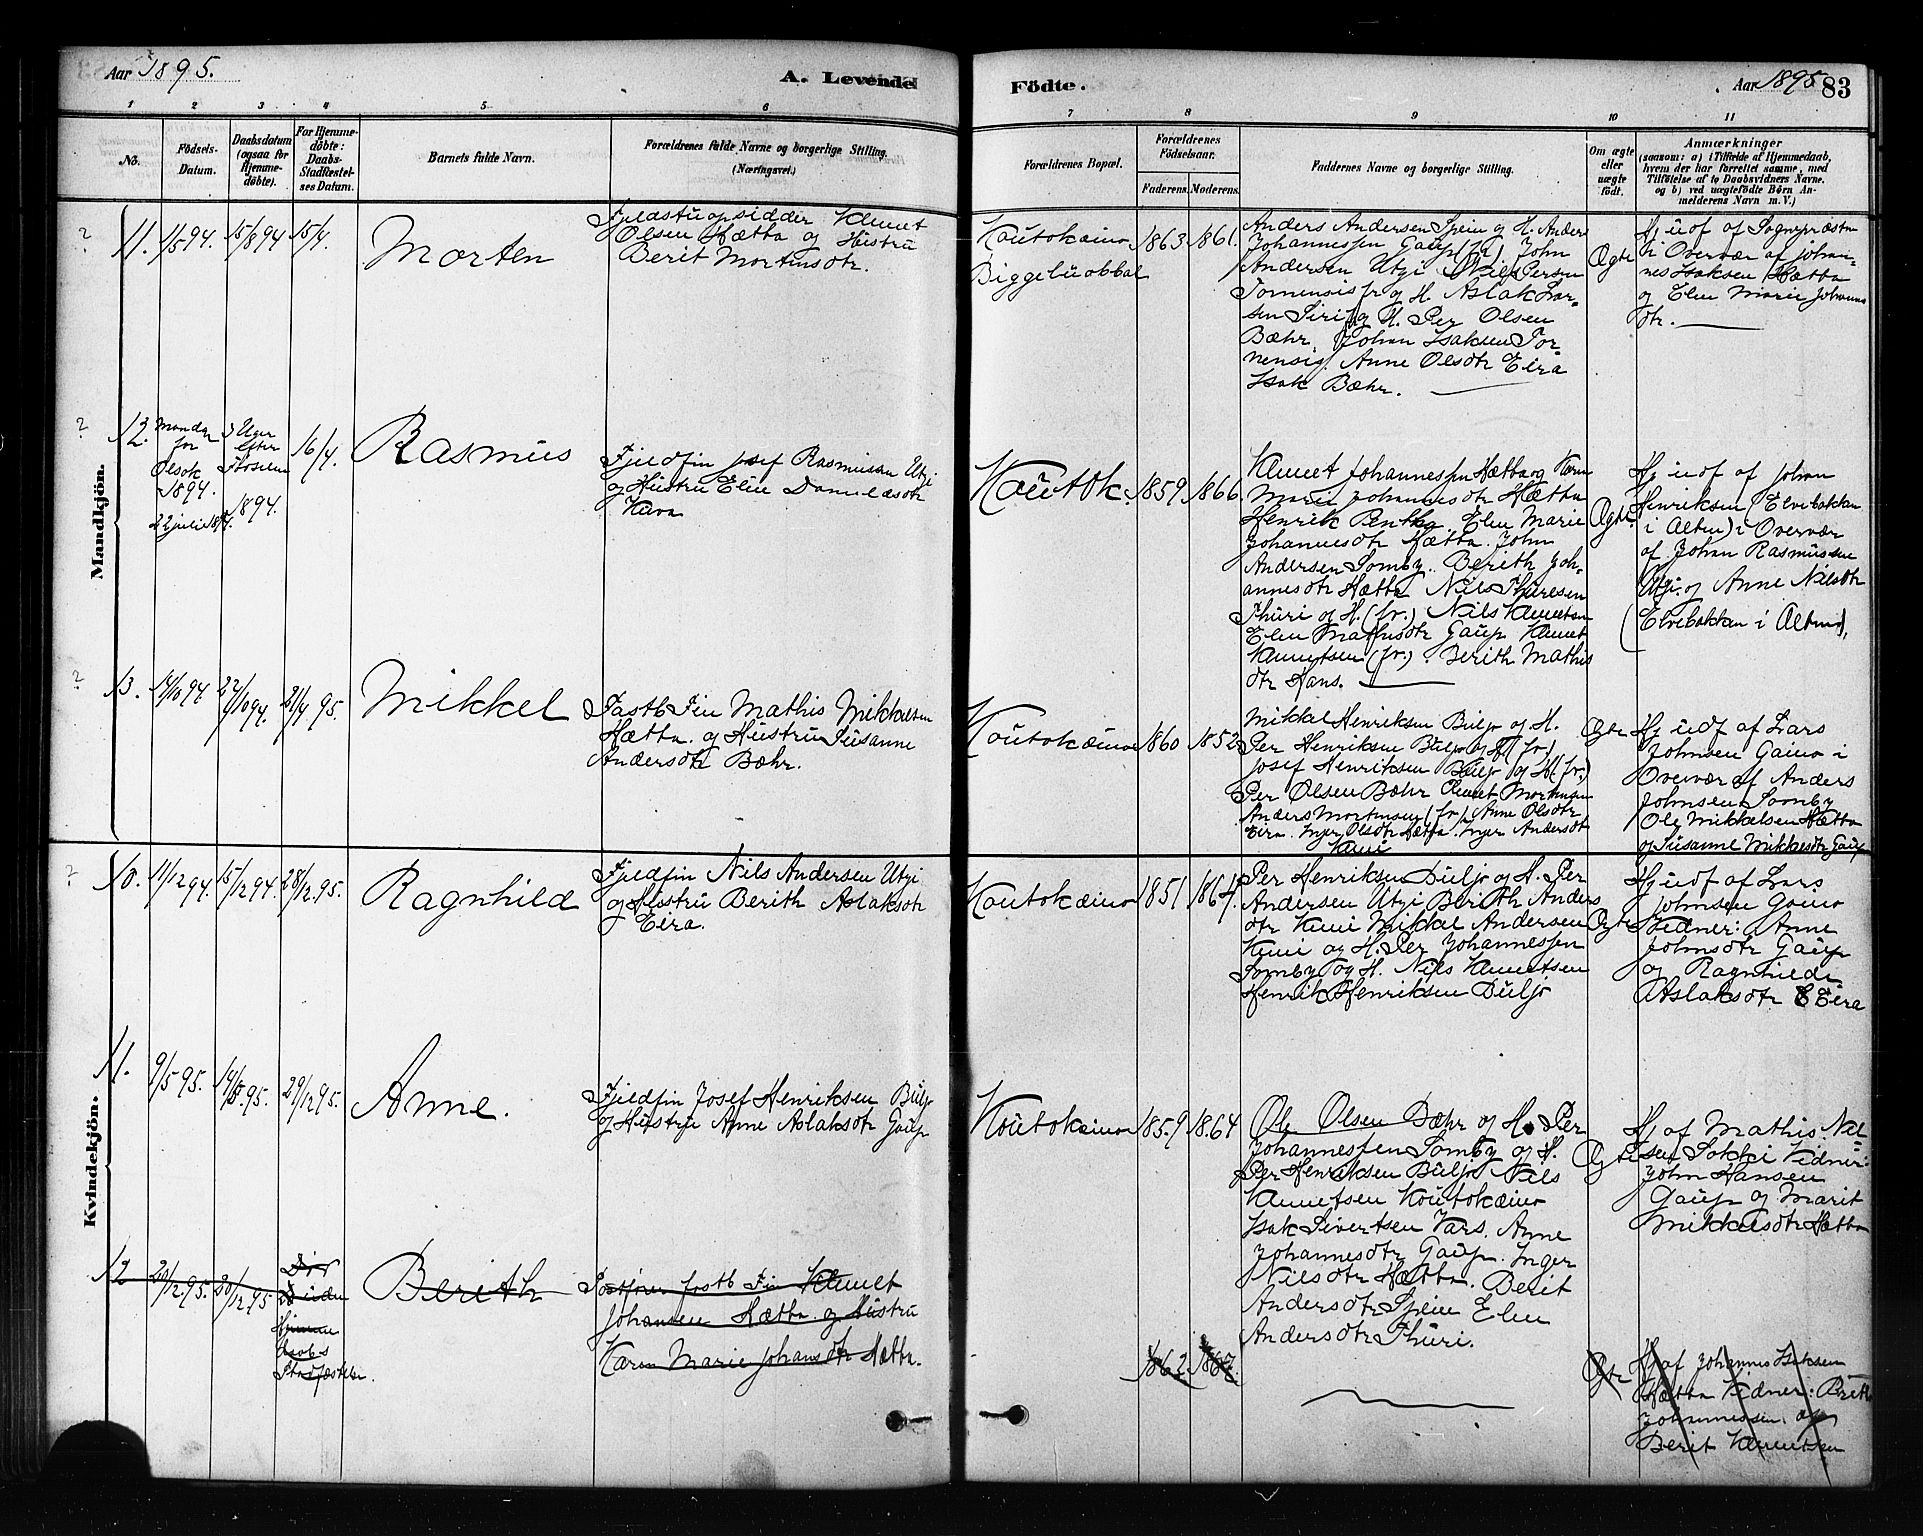 Aar 1895.
A. Levende
Födte.
Aar 1895 83
1 2 3 4 5 6
7 8 9 10 11
No.
Födsels-
Datum.
Daabsdatum
(ogsaa for
Hjemme-
döbte).
For Hjemme-
döbte:
Daabs-
Stadfæstel-
ses Datum.
Barnets fulde Navn.
Forældrenes fulde Navne og borgerlige Stilling.
(Næringsvei.)
Forældrenes Bopæl.
Forældrenes
Födselsaar.
Faderens. Moderens.
Faddernes Navne og borgerlige Stilling.
Om ægte
eller
uægte
født.
Anmærkninger
(saasom: a) i Tilfælde af Hjemmedaab,
hvem der har forrettet samme, med
Tilföielse af to Daabsvidners Navne.
og b) ved uægtefödte Börn An-
melderens Navn m. V.)
Mandkjön.
?
11.
11/5 94.
15/8 94
15/4.
Morten
Fjeldstuopsidder Klemet
Olsen Hætta og Hustru
Berit Mortensdtr.
Koutokeino
Biggeluobbal
1863.
1861.
Anders Andersen Spein og H. Anders
Johannessen Gaup (jr) John
Andersen Utzi Nils Persen
Tornensis jr og H. Aslak Lar-
sen Siri og H. Per Olsen
Bæhr. Johan Isaksen Tor-
nensis. Anne Olsdtr Eira
Isak Bæhr.
Ægte
Hj udf af Sognepræsten
i Overvær af Johan-
nes Isaksen Hætta
og Elen Marie Johannes
dtr.
?
12.
Mandag
for
Olsok
1894.
22 juli 1894.
3 Uger
efter
1894.
16/4.
Rasmus
Fjeldfin Josef Rasmussen Utzi
og Hustru Elen Danielsdtr
Kava
Koutok.
1859
1866
Klemet Johannessen Hætta og Karen
Marie Johannesdtr Hætta
Henrik Bentha. Elen Marie
Johannesdtr Hætta. John
Andersen Somby. Berith Joh-
annesdtr Hætta Nils Thuresen
Thuri og H. (jr.) Nils Klemetsen
Elen Mathisdtr Gaup. Klemet
Klemetsen (jr.) Berith Mathis
dtr Hans.
Ægte.
Hj udf af Johan
Henriksen (Elvebakken
i Alten) i Overvær
af Johan Rasmussen
Utzi og Anne Nilsdtr
(Elvebakken i Alten),
?
13.
14/10 94.
27/10 94.
21/4 95.
Mikkel
Fastb Fin Mathis Mikkelsen
Hætta. og Hustru Susanne
Andersdtr Bæhr.
Koutokeino
1860
1852
Mikkel Henriksen Buljo og H.
Per Henriksen Buljo og H (jr.)
Josef Henriksen Buljo og H. (jr.)
Per Olsen Bæhr Klemet Mortensen
Anders Mortensen (jr.) Anne Olsdtr
Eira. Inger Olsdtr Hætta. Inger Andersdt
Kemi
Ægte
Hj udf af Lars
Johnsen Gaino i
Overvær af Anders
Johnsen Somby
Ole Mikkelsen Hætta
og Susanne Mikkelsdtr Gaup
Kvindekjön.
?
10.
11/12 94.
15/12 94.
28/12. 95.
Ragnhild
Fjeldfin Nils Andersen Utzi
og Hustru Berith Aslaksdtr
Eira.
Koutokeino
1851
1864.
Per Henriksen Buljo og H. Per
Andersen Utzi Berith Anders
dtr Kemi Mikkel Andersen
Kemi og H. Per Johannessen
Somby og H. Nils Klemetsen
Henrik Henriksen Buljo
Ægte
Hj udf af Lars
Johnsen Gaino
Vidner: Anne
Johnsdtr Gaup
og Ragnhilde
Aslaksdtr Eira
11.
9/5 95.
19/5 95.
29/12 95.
Anne.
Fjeldfin Josef Henriksen Buljo
og Hustru Anne Aslaksdtr Gaup
Koutokeino
1859
1864
Ole Olsen Bæhr og H. Per
Johannessen Somby og H.
Per Henriksen Buljo Nils
Klemetsen Koutokeino
Isak Sivertsen Vars. Anne
Johannesdtr Gaup. Inger
Nilsdtr Hætta. Berit
Andersdtr Spein Elen
Andersdtr Thuri.
Ægte
Hj af Mathis Nil-
sen Sokki Vidner:
John Hansen
Gaup og Marit
Mikkelsdtr Hætta
12
20/12 95.
20/12 95
Dör
uden
Hjemme
daabs
Stadfæstelse.
Berith
Postförer fastb Fin Klemet
Johansen Hætta og Hustru
Karen Marie Johansdtr Hætta.
1862
1867.
Ægte
Hj af Johannes Isaksen
Hætta Vidner: Berith
Johannessen og
Berit Klemetsen